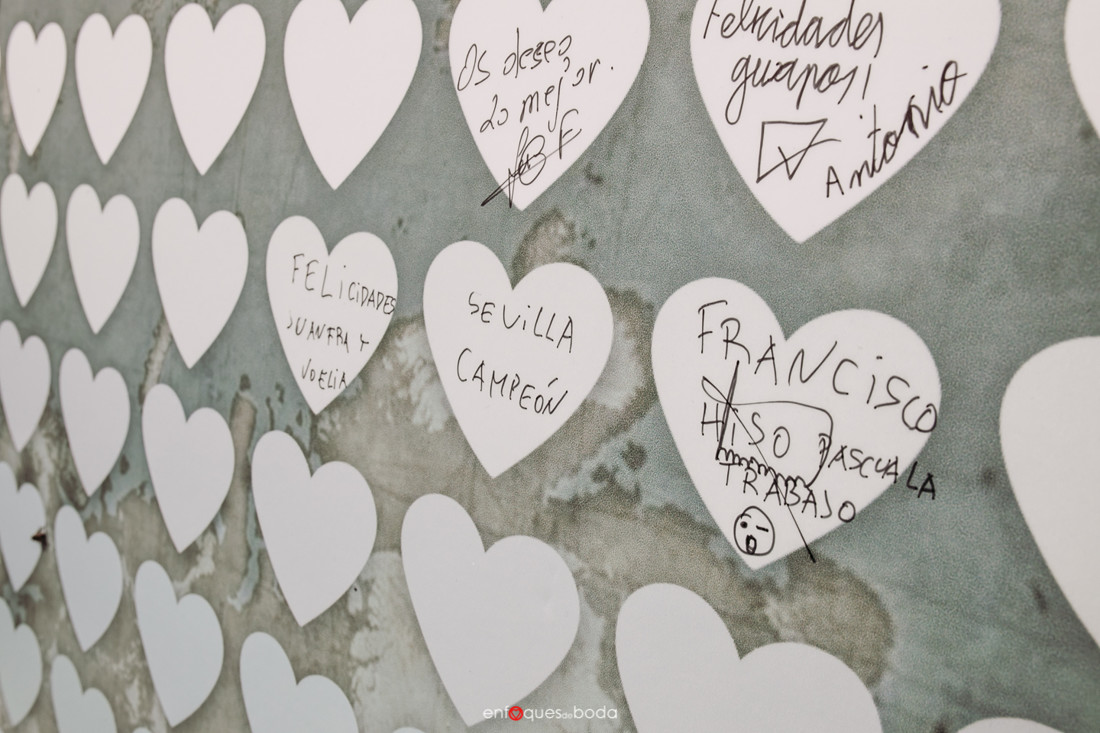 Os deseo
lo mejor.
Felicidades
guapos!
Antonio
FELiCiDADES
JUANFRA Y
NOELiA
SEViLLA
CAMPEÓN
FRANCiSCO
HiSO
PASCUALA
TRABAJO
enfoquesdeboda